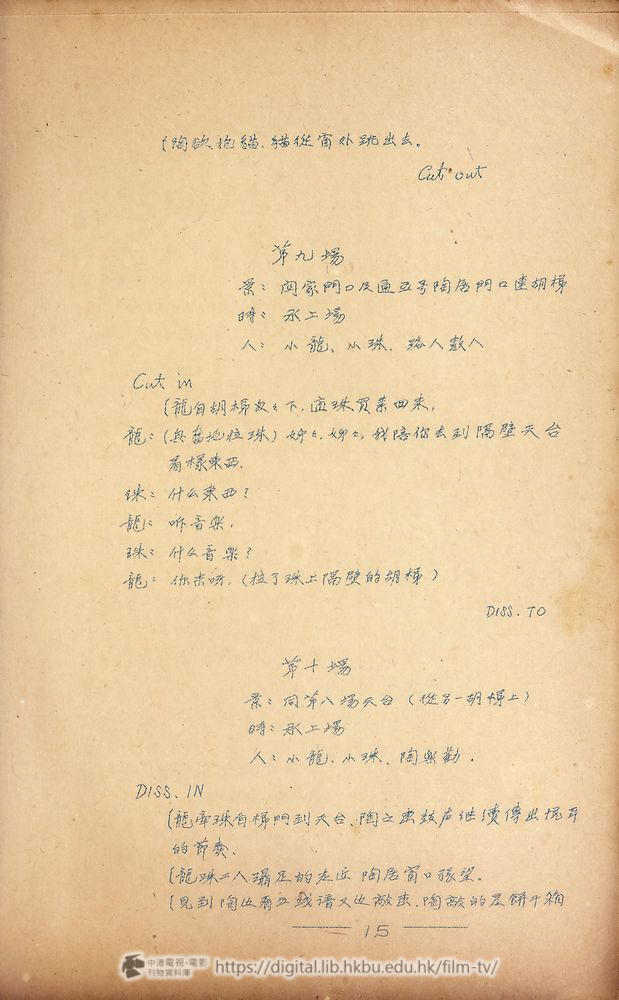 (陶欲抱貓、貓從窗外跳出去。
Cut out
第九場
景：閻家門口及通五号陶居門口連胡梯
時：承上場
人：小龍、小珠、路人數人
Cut in
(龍自胡梯放々下，適珠買菜回來，
龍：(興奮地拉珠) 姊々，姊々，我陪你去到隔壁天台
看樣東西、
珠：什么東西？
龍：听音樂，
珠：什么音樂？
龍：你來呀，(拉了珠上隔壁的胡梯)
DISS. TO
第十場
景：同第八場天台 (從另一胡梯上)
時：承上場
人：小龍、小珠、陶樂勤.
DISS. IN
(龍牽珠自梯門到天台、陶之鼓声继續傳出悦耳
的節奏、
(龍珠二人躡足的走近 陶居窗口張望。
(見到陶 看五线谱又 敲 、陶敲的是餅干箱
15
中港電視・電影
刊物資料庫
https://digital.lib.hkbu.edu.hk/film-tv/